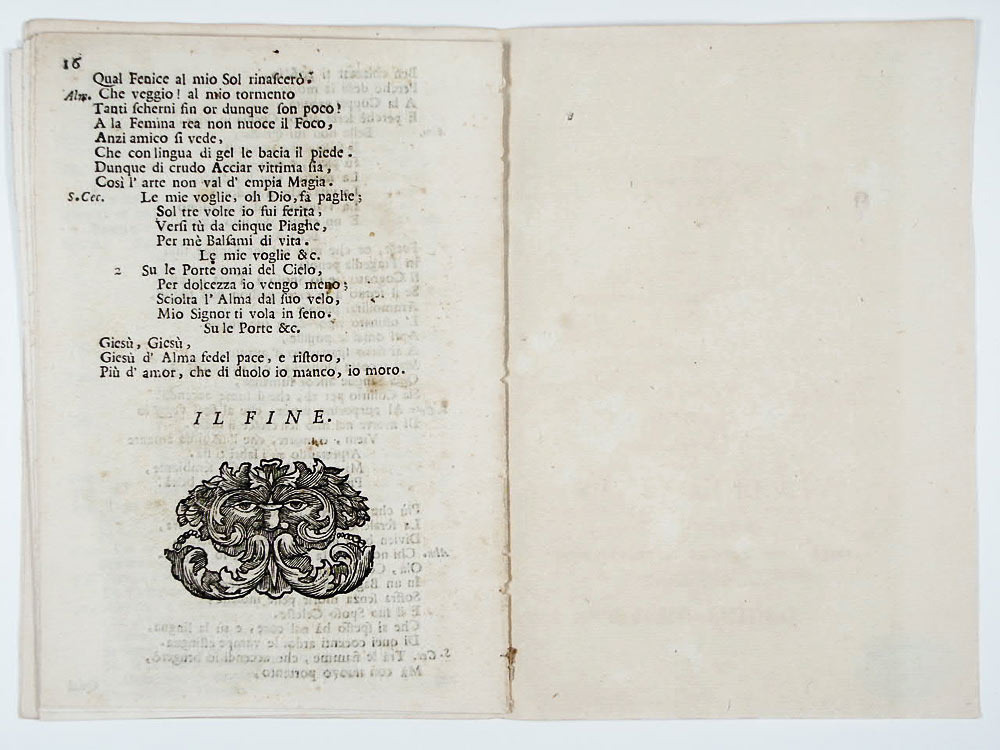 16
Qual Fenice al mio Sol rinaſcerò.
Alm. Che veggio! al mio tormento
Tanti ſcherni fin or dunque ſon poco?
A la Femina rea non nuoce il Foco,
Anzi amico ſi vede,
Che con lingua di gel le bacia il piede.
Dunque di crudo Acciar vittima ſia,
Così l' arte non val d' empia Magia.
S.Cec. Le mie voglie, oh Dio, fà paghe;
Sol tre volte io fui ferita,
Verſi tù da cinque Piaghe,
Per mè Balſami di vita.
Le mie voglie &c.
2 Su le Porte omai del Cielo,
Per dolcezza io vengo meno;
Sciolta l' Alma dal ſuo velo,
Mio Signor ti vola in ſeno.
Su le Porte &c.
Giesù, Giesù,
Giesù d' Alma fedel pace, e riſtoro,
Più d' amor, che di duolo io manco, io moro.
IL FINE.